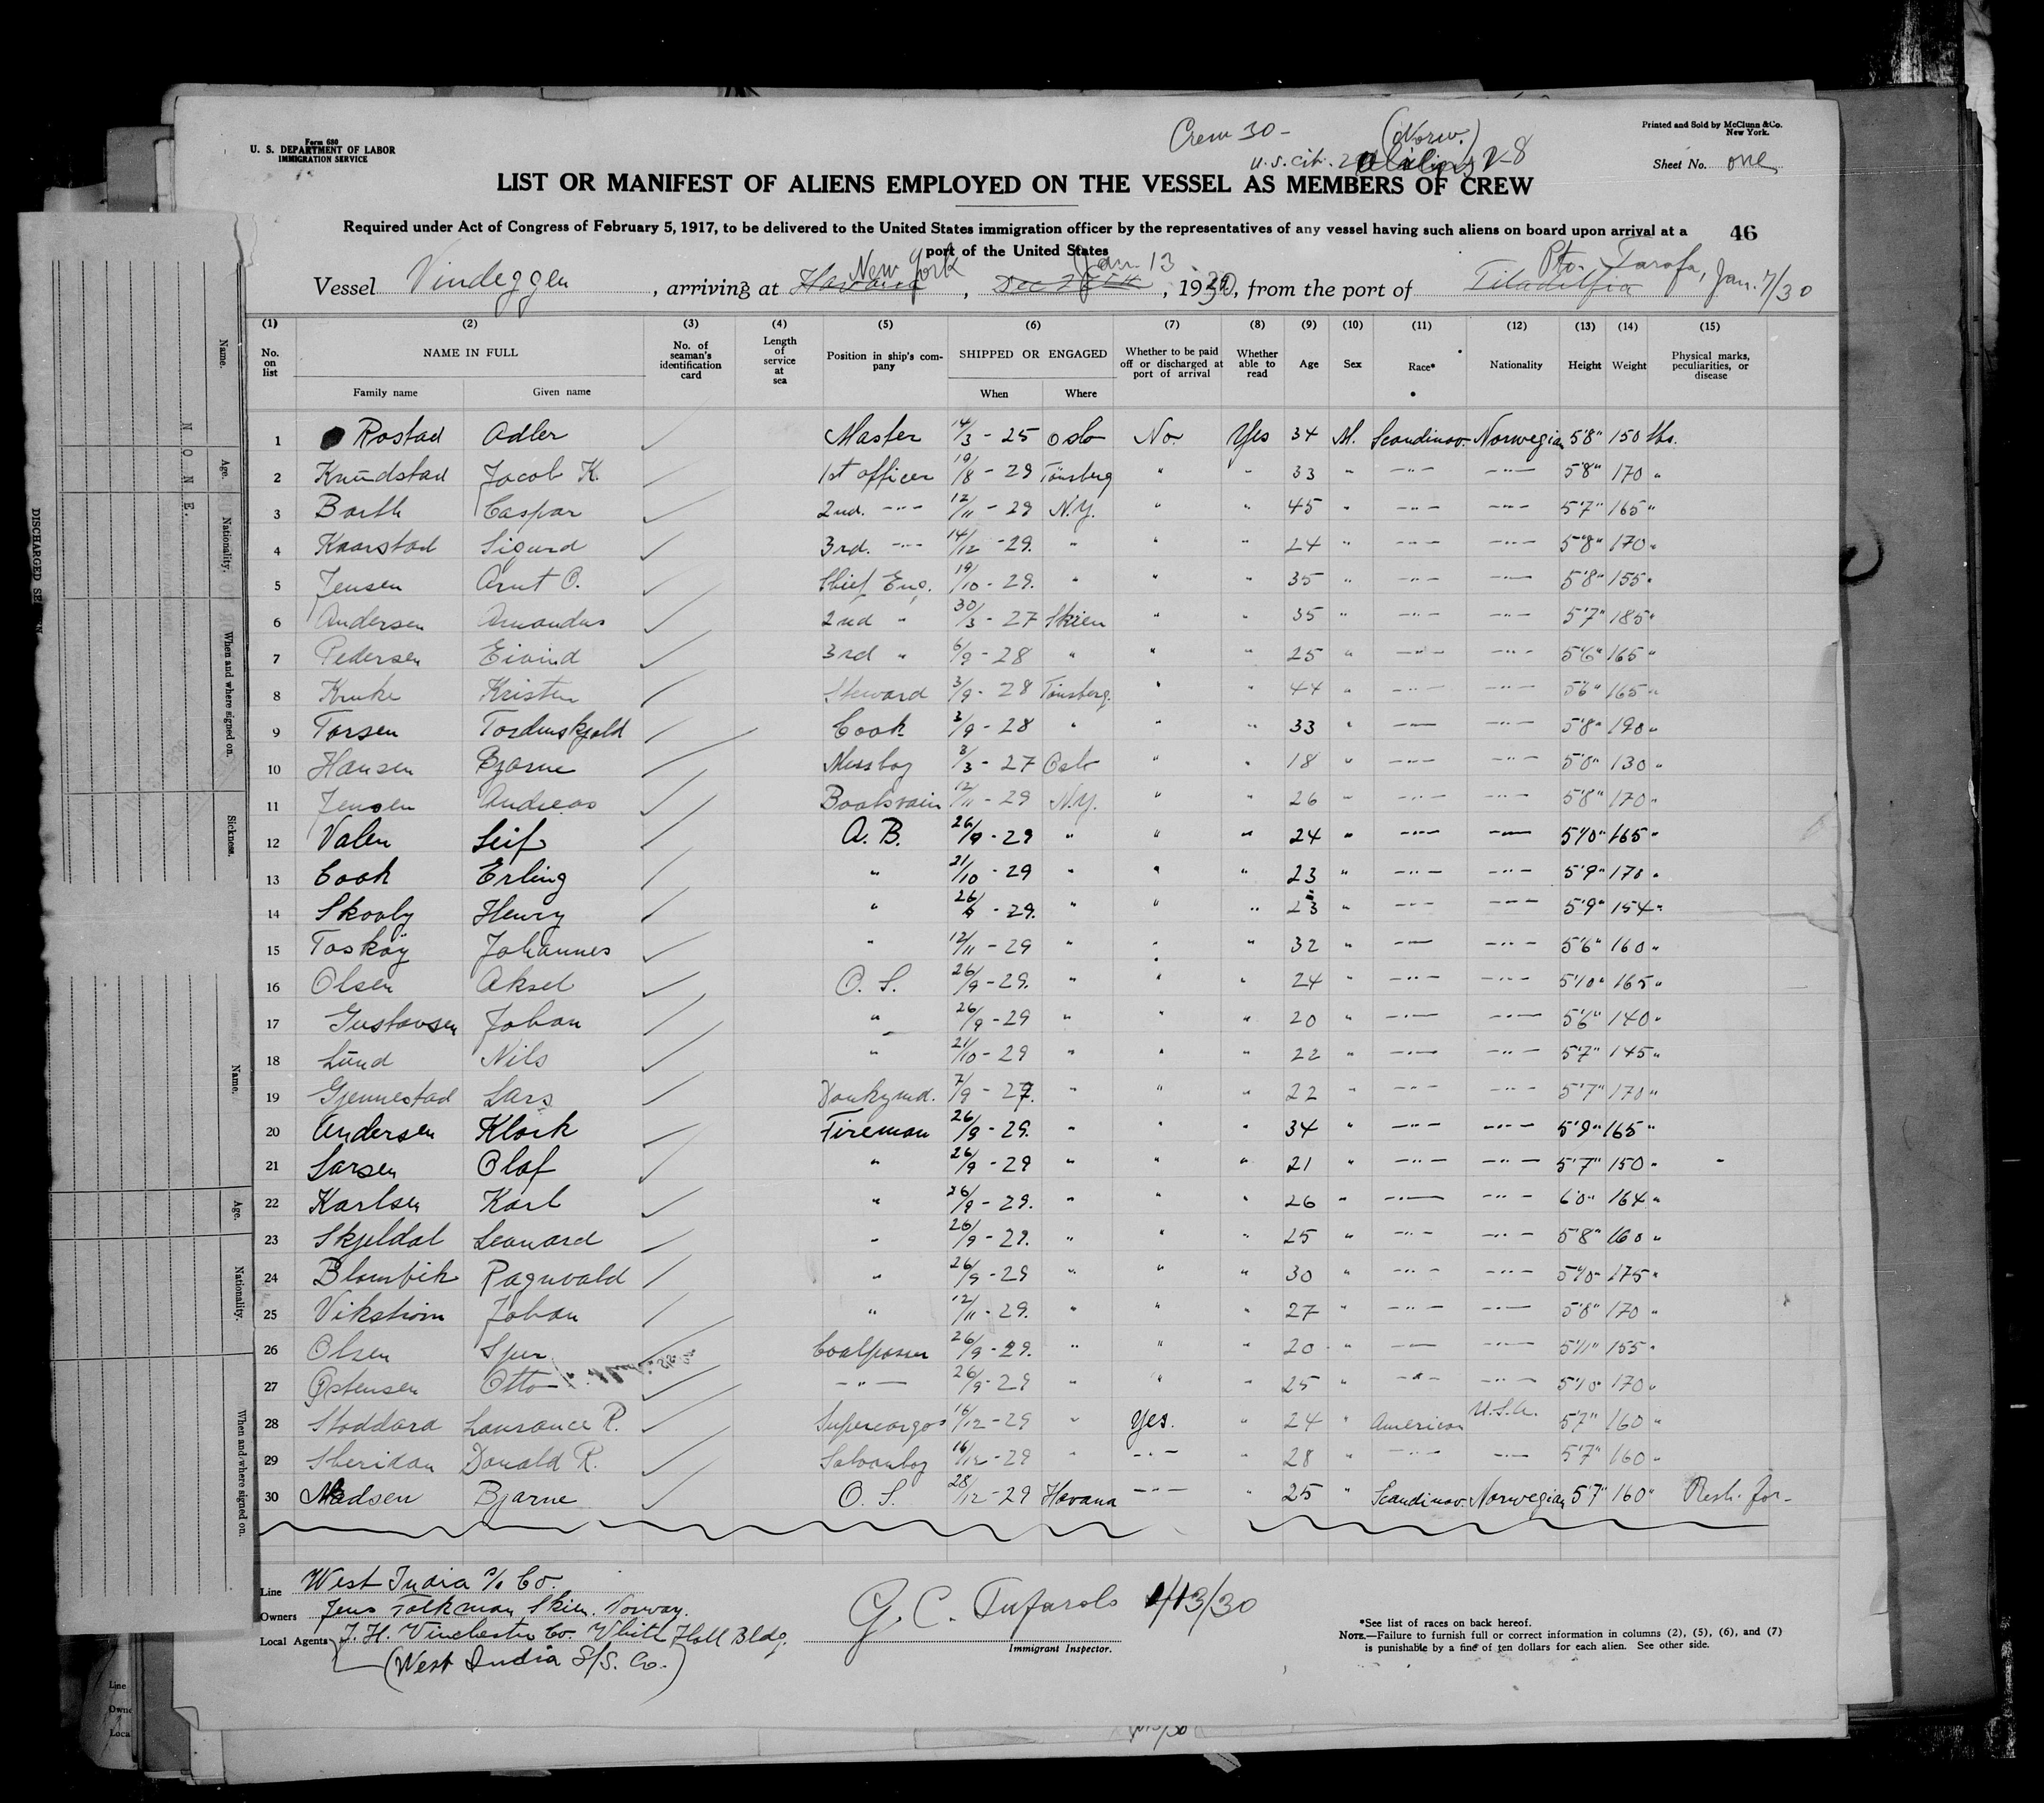 Form 680
U. S. DEPARTMENT OF LABOR
IMMIGRATION SERVICE
Crew 30 - (Norw.)
U.S. Cit. 2 28
Printed and Sold by McClunn & Co.
New York.
Sheet No. one
LIST OR MANIFEST OF ALIENS EMPLOYED ON THE VESSEL AS MEMBERS OF CREW
Required under Act of Congress of February 5, 1917, to be delivered to the United States immigration officer by the representatives of any vessel having such aliens on board upon arrival at a
port of the United States
46
New York Jan. 13 Pto. Tarafa, Jan. 7/30
Vessel Vindeggen, arriving at Havana, 1930, from the port of Filadelfia
(1) (2) (3) (4) (5) (6) (7) (8) (9) (10) (11) (12) (13) (14) (15)
No. on list NAME IN FULL No. of seaman's identification card Length of service at sea Position in ship's company SHIPPED OR ENGAGED Whether to be paid off or discharged at port of arrival Whether able to read Age Sex Race* Nationality Height Weight Physical marks, peculiarities, or disease
Family name Given name When Where
1 Rostad Adler Master 14/3 - 25 Oslo No Yes 34 M. Scandinav. Norwegian 5'8" 150 lbs.
2 Knudstad Jacob K. 1st officer 19/8 - 29 Tönsberg " " 33 " -"- -"- 5'8" 170 "
3 Barth Caspar 2nd. -"- 12/11 - 29 N.Y. " " 45 " -"- -"- 5'7" 165 "
4 Kaarstad Sigurd 3rd. -"- 14/12 - 29. " " " 24 " -"- -"- 5'8" 170 "
5 Jensen Arnt O. Chief Eng. 19/10 - 29. " " " 35 " -"- -"- 5'8" 155 "
6 Andersen Amandus 2nd " 30/3 - 27 Skien " " 35 " -"- -"- 5'7" 185 "
7 Pedersen Eivind 3rd " 6/9 - 28 " " " 25 " -"- -"- 5'6" 165 "
8 Kruke Kristen Steward 3/9 - 28 Tönsberg. " " 44 " -"- -"- 5'6" 165 "
9 Torsen Tordenskjold Cook 3/9 - 28 " " " 33 " -"- -"- 5'8" 190 "
10 Hansen Bjarne Messboy 3/3 - 27 Oslo " " 18 " -"- -"- 5'8" 130 "
11 Jensen Andreas Boatsvain 12/11 - 29 N.Y. " " 26 " -"- -"- 5'8" 170 "
12 Valen Leif A. B. 26/9 - 29 " " " 24 " -"- -"- 5'10" 165 "
13 Cook Erling " 21/10 - 29 " " " 23 " -"- -"- 5'9" 170 "
14 Skooly Henry " 26/9 - 29. " " " 23 " -"- -"- 5'9" 154 "
15 Toskøy Johannes " 12/11 - 29 " " " 32 " -"- -"- 5'6" 160 "
16 Olsen Aksel O. S. 26/9 - 29. " " " 24 " -"- -"- 5'10" 165 "
17 Gustavsen Johan " 26/9 - 29 " " " 20 " -"- -"- 5'6" 140 "
18 Lund Nils " 21/10 - 29 " " " 22 " -"- -"- 5'7" 145 "
19 Gjennestad Lars Donkymd. 7/9 - 27. " " " 22 " -"- -"- 5'7" 170 "
20 Andersen Klark Fireman 26/9 - 29. " " " 34 " -"- -"- 5'9" 165 "
21 Larsen Olaf " 26/9 - 29 " " " 21 " -"- -"- 5'7" 150 "
22 Karlsen Karl " 26/9 - 29. " " " 26 " -"- -"- 6'0" 164 "
23 Skjeldal Leonard " 26/9 - 29. " " " 25 " -"- -"- 5'8" 160 "
24 Blomvik Ragnvald " 26/9 - 29 " " " 30 " -"- -"- 5'10" 175 "
25 Vikstrom Johan " 12/11 - 29. " " " 27 " -"- -"- 5'8" 170 "
26 Olsen Coalpasser 26/9 - 29. " " " 20 " -"- -"- 5'11" 155 "
27 Østensen Otto -"- 26/9 - 29 " " " 25 " -"- -"- 5'10" 170 "
28 Stoddard Laurance R. Supercargo 16/12 - 29 " Yes. " 24 " American U.S.A. 5'7" 160 "
29 Sheridan Donald R. Saloonboy 16/12 - 29 " -"- " 28 " -"- -"- 5'7" 160 "
30 Madsen Bjarne O. S. 28/12 - 29 Havana -"- " 25 " Scandinav. Norwegian 5'7" 160 "
Line West India S/S Co.
Owners Jens Folkman, Skien, Norway.
Local Agents J. H. Winchester Co. White Hall Bldg.
(West India S/S. Co.)
G. C. 1/13/30
Immigrant Inspector.
*See list of races on back hereof.
NOTE.—Failure to furnish full or correct information in columns (2), (5), (6), and (7)
is punishable by a fine of ten dollars for each alien. See other side.
Name.
Age.
Nationality.
When and where signed on.
Sickness.
NONE.
DISCHARGED
Name.
Age.
Nationality.
When and where signed on.
Line